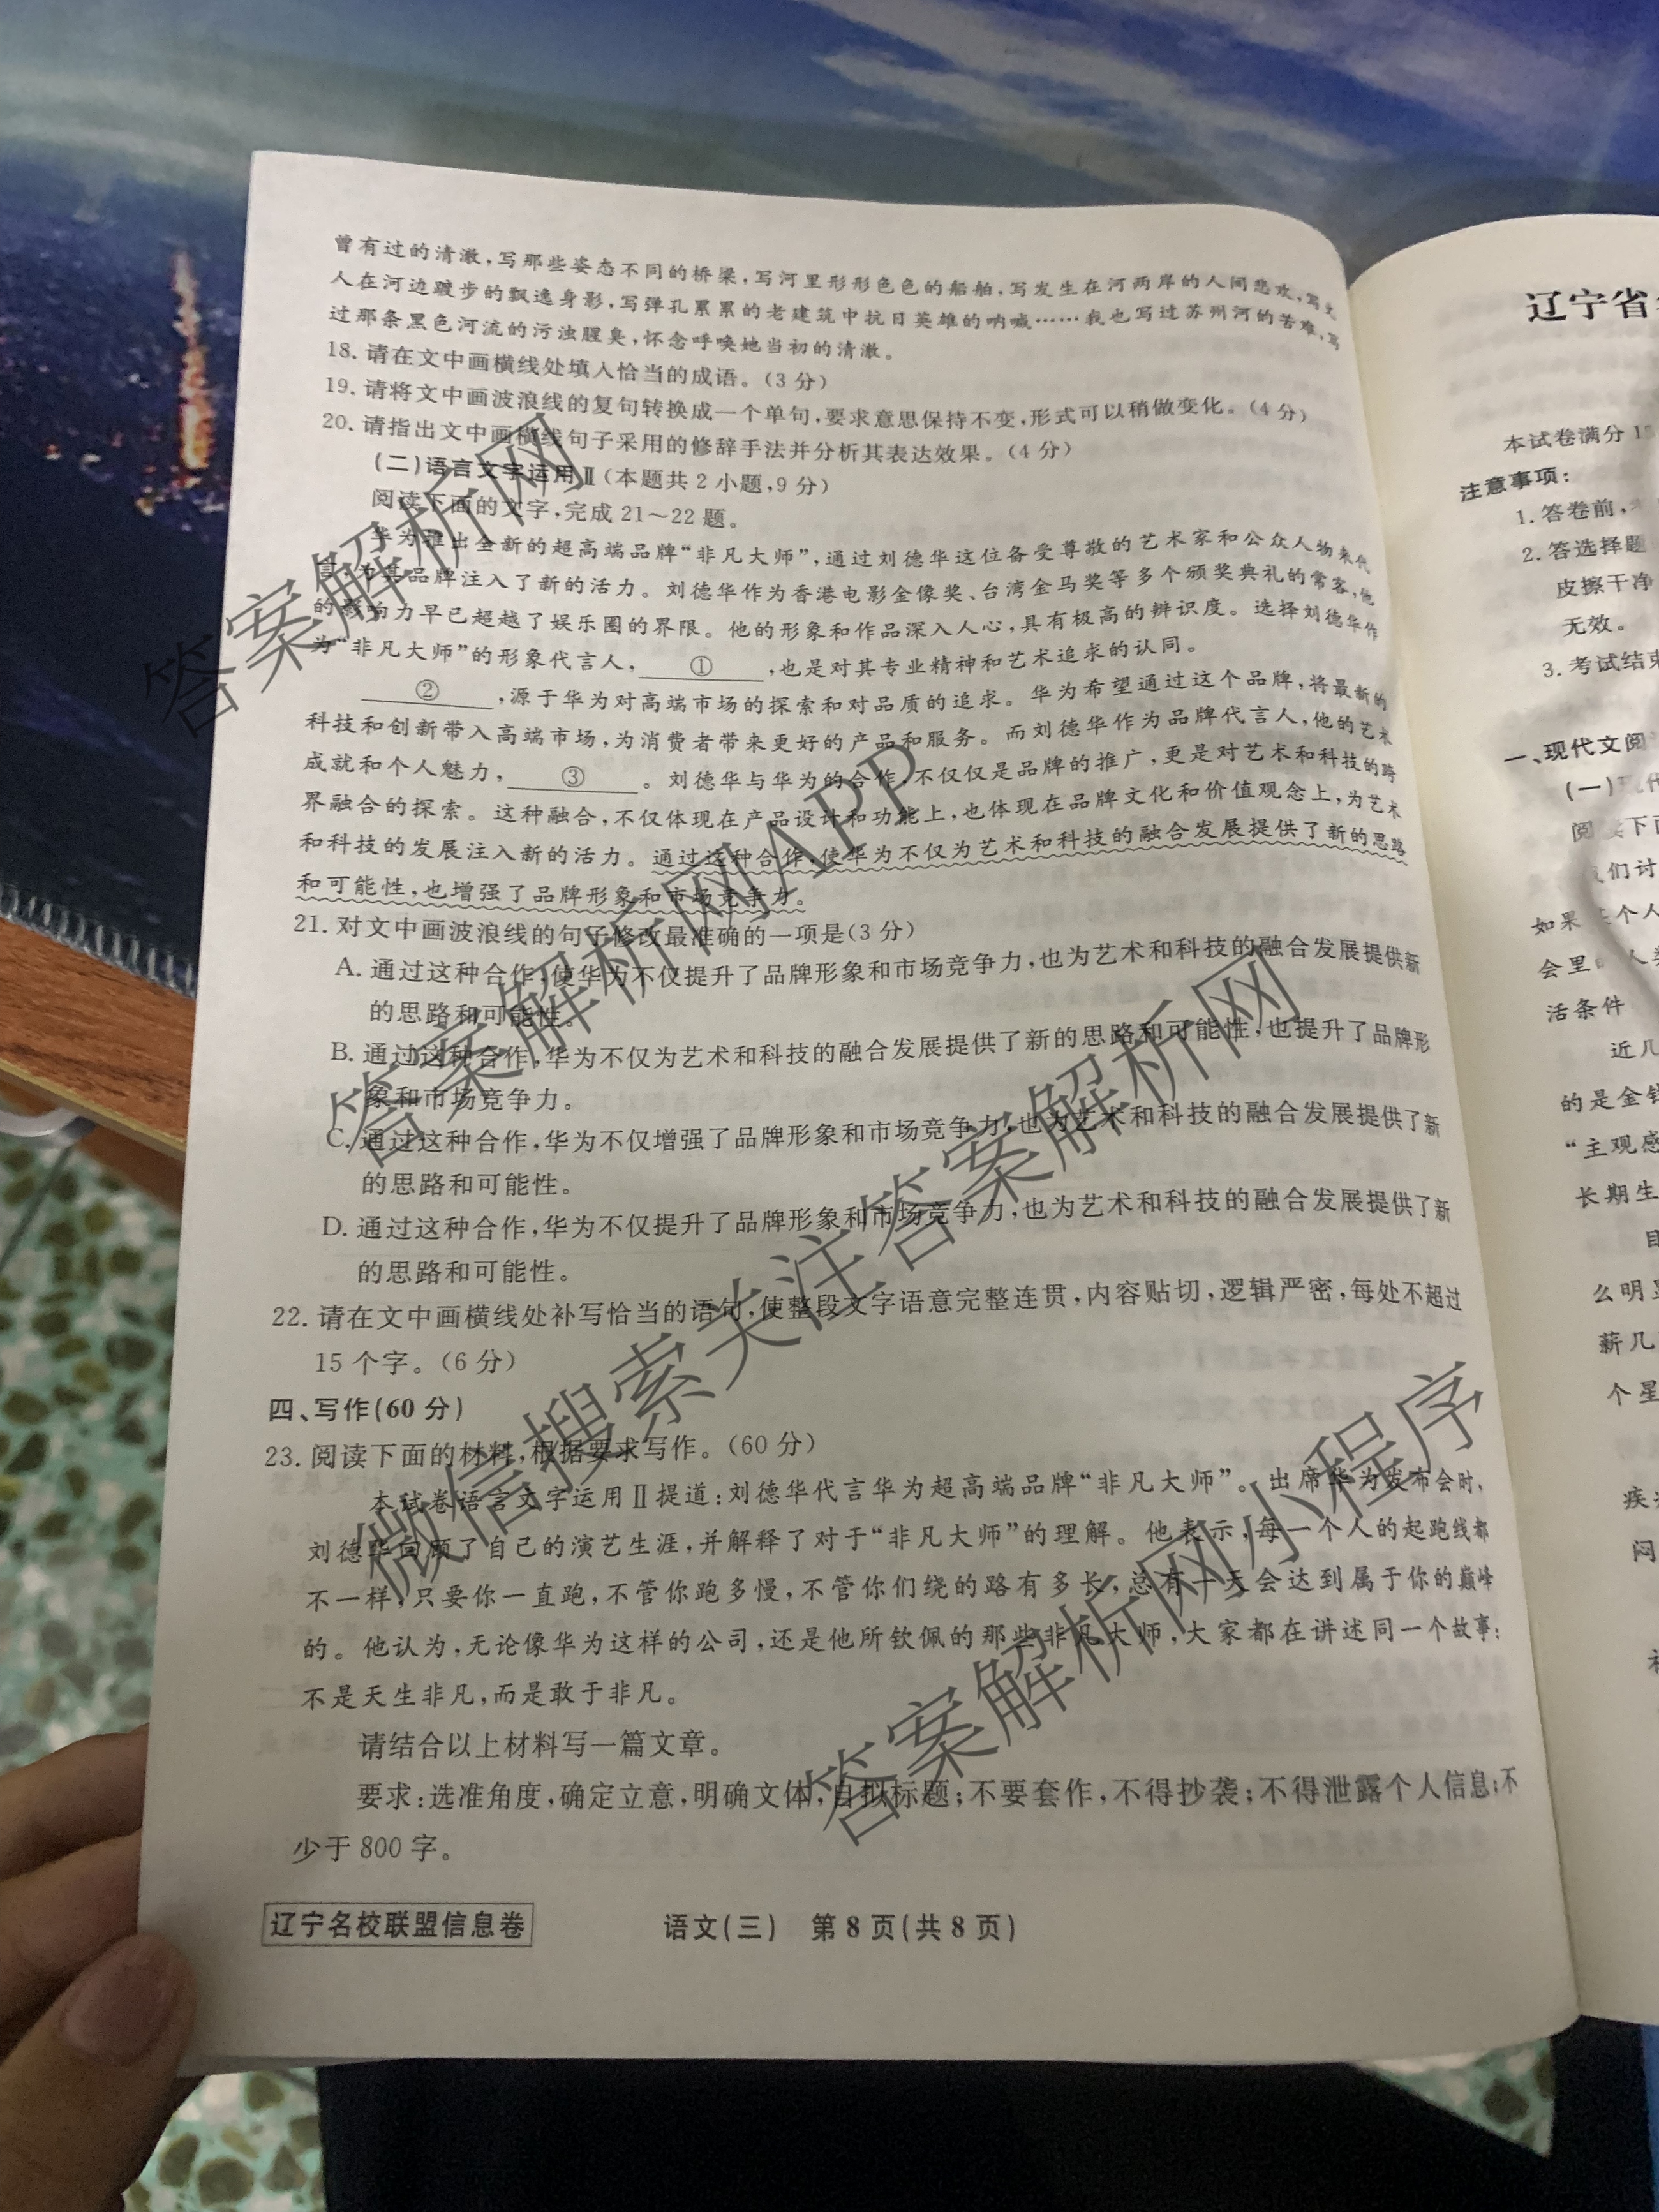 曾有过的清澈，写那些姿态不同的桥梁，写河里形形色色的船舶，写发生在河两岸的人间悲欢，写文
人在河边踱步的飘逸身影，写弹孔累累的老建筑中抗日英雄的呐喊……我也写过苏州河的苦难，写
过那条黑色河流的污浊腥臭，怀念呼唤她当初的清澈。
18. 请在文中画横线处填入恰当的成语。（3分）
19. 请将文中画波浪线的复句转换成一个单句，要求意思保持不变，形式可以稍做变化。（4分）
20. 请指出文中画横线句子采用的修辞手法并分析其表达效果。（4分）
（二）语言文字运用Ⅱ（本题共2小题，9分）
阅读下面的文字，完成21～22题。
华为推出全新的超高端品牌“非凡大师”，通过刘德华这位备受尊敬的艺术家和公众人物来代
言，为其品牌注入了新的活力。刘德华作为香港电影金像奖、台湾金马奖等多个颁奖典礼的常客，他
的影响力早已超越了娱乐圈的界限。他的形象和作品深入人心，具有极高的辨识度。选择刘德华作
为“非凡大师”的形象代言人，①，也是对其专业精神和艺术追求的认同。
②，源于华为对高端市场的探索和对品质的追求。华为希望通过这个品牌，将最新的
科技和创新带入高端市场，为消费者带来更好的产品和服务。而刘德华作为品牌代言人，他的艺术
成就和个人魅力，③。刘德华与华为的合作，不仅仅是品牌的推广，更是对艺术和科技的跨
界融合的探索。这种融合，不仅体现在产品设计和功能上，也体现在品牌文化和价值观念上，为艺术
和科技的发展注入新的活力。通过这种合作，使华为不仅为艺术和科技的融合发展提供了新的思路
和可能性，也增强了品牌形象和市场竞争力。
21. 对文中画波浪线的句子修改最准确的一项是（3分）
A. 通过这种合作，使华为不仅提升了品牌形象和市场竞争力，也为艺术和科技的融合发展提供新
的思路和可能性。
B. 通过这种合作，华为不仅为艺术和科技的融合发展提供了新的思路和可能性，也提升了品牌形
象和市场竞争力。
C. 通过这种合作，华为不仅增强了品牌形象和市场竞争力，也为艺术和科技的融合发展提供了新
的思路和可能性。
D. 通过这种合作，华为不仅提升了品牌形象和市场竞争力，也为艺术和科技的融合发展提供了新
的思路和可能性。
22. 请在文中画横线处补写恰当的语句，使整段文字语意完整连贯，内容贴切，逻辑严密，每处不超过
15个字。（6分）
四、写作（60分）
23. 阅读下面的材料，根据要求写作。（60分）
本试卷语言文字运用Ⅱ提道：刘德华代言华为超高端品牌“非凡大师”。出席华为发布会时，
刘德华回顾了自己的演艺生涯，并解释了对于“非凡大师”的理解。他表示，每一个人的起跑线都
不一样，只要你一直跑，不管你跑多慢，不管你们绕的路有多长，总有一天会达到属于你的巅峰
的。他认为，无论像华为这样的公司，还是他所钦佩的那些非凡大师，大家都在讲述同一个故事：
不是天生非凡，而是敢于非凡。
请结合以上材料写一篇文章。
要求：选准角度，确定立意，明确文体，自拟标题；不要套作，不得抄袭；不得泄露个人信息；不
少于800字。
辽宁名校联盟信息卷 语文（三） 第8页（共8页）
辽宁省
本试卷满分
注意事项：
1. 答卷前，
2. 答选择题
皮擦干净
无效。
3. 考试结束
一、现代文阅
（一）现代
阅读下面
我们讨
如果某个人
会里
活条件
近几
的是金钱
“主观感
长期生
么明显
薪几
个星
疾
闷
答案解析网
答案解析网APP
微信搜索关注答案解析网
答案解析网小程序